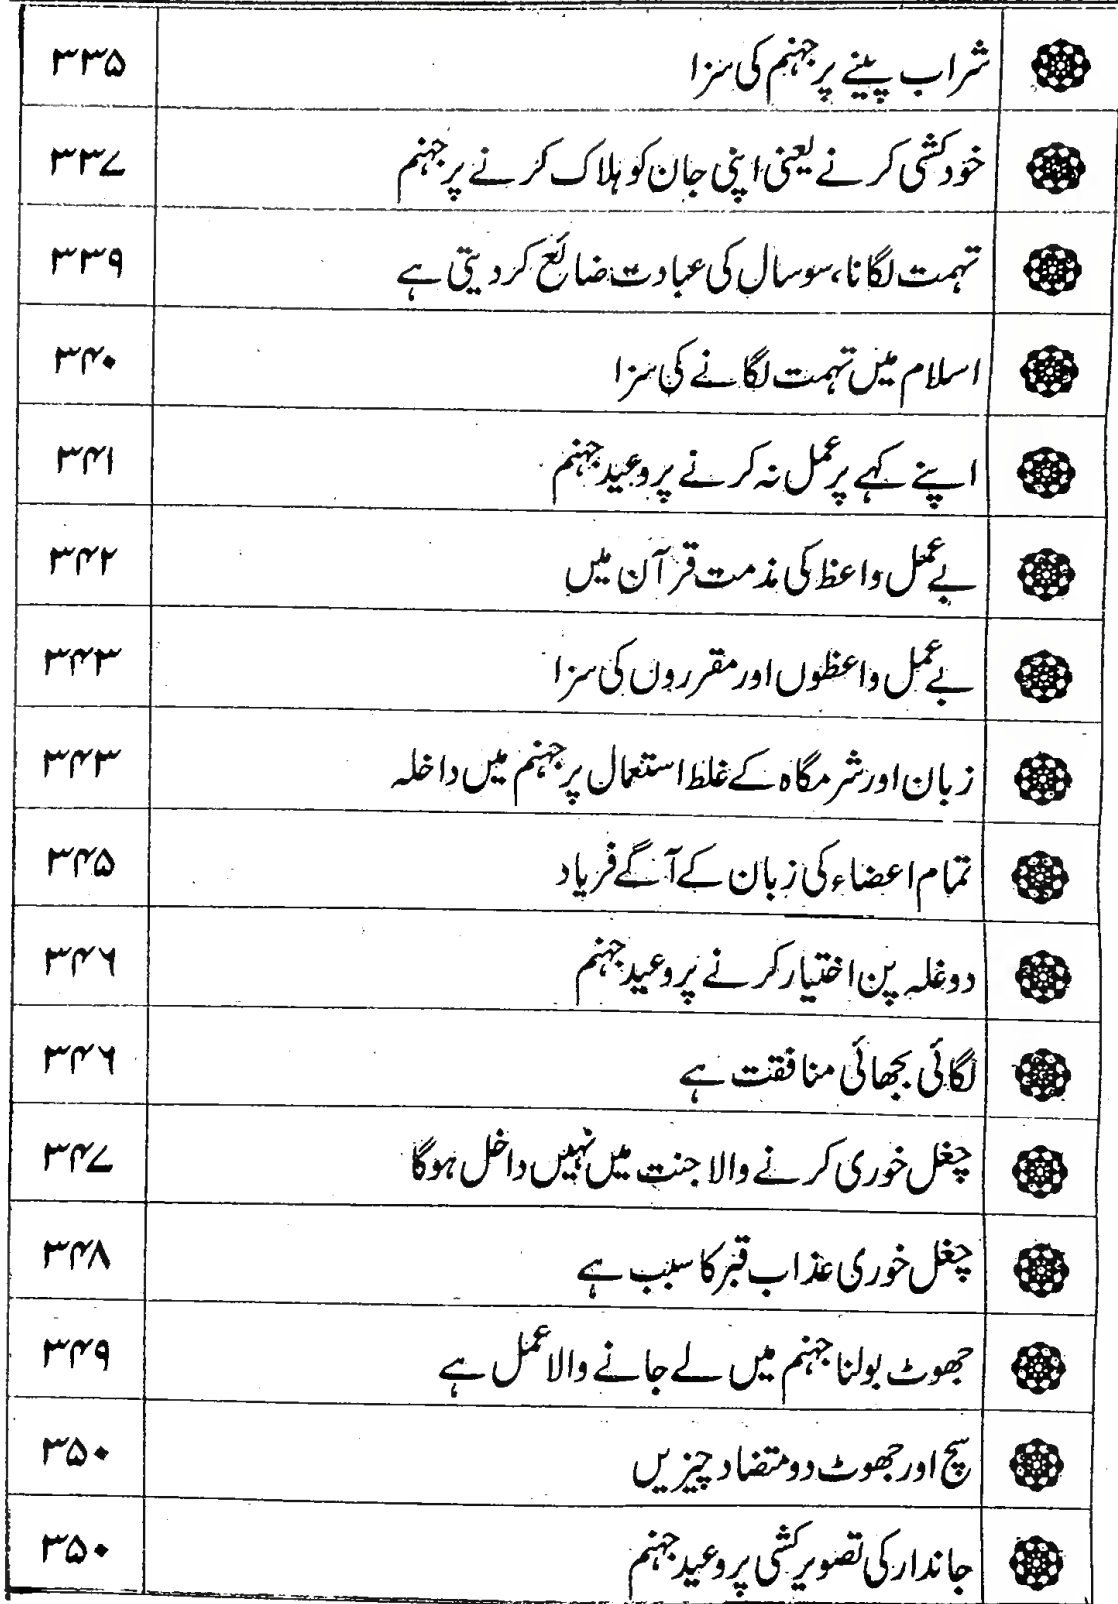 شراب پینے پر جہنم کی سزا ۳۳۵
خودکشی کرنے یعنی اپنی جان کو ہلاک کرنے پر جہنم ۳۳۷
تہمت لگانا، سو سال کی عبادت ضائع کر دیتی ہے ۳۳۹
اسلام میں تہمت لگانے کی سزا ۳۴۰
اپنے کہے پر عمل نہ کرنے پر وعید جہنم ۳۴۱
بے عمل واعظ کی مذمت قرآن میں ۳۴۲
بے عمل واعظوں اور مقرروں کی سزا ۳۴۳
زبان اور شرمگاہ کے غلط استعمال پر جہنم میں داخلہ ۳۴۳
تمام اعضاء کی زبان کے آگے فریاد ۳۴۵
دوغلہ پن اختیار کرنے پر وعید جہنم ۳۴۶
لگائی بجھائی منافقت ہے ۳۴۶
چغل خوری کرنے والا جنت میں نہیں داخل ہوگا ۳۴۷
چغل خوری عذاب قبر کا سبب ہے ۳۴۸
جھوٹ بولنا جہنم میں لے جانے والا عمل ہے ۳۴۹
سچ اور جھوٹ دو متضاد چیزیں ۳۵۰
جاندار کی تصویر کشی پر وعید جہنم ۳۵۰